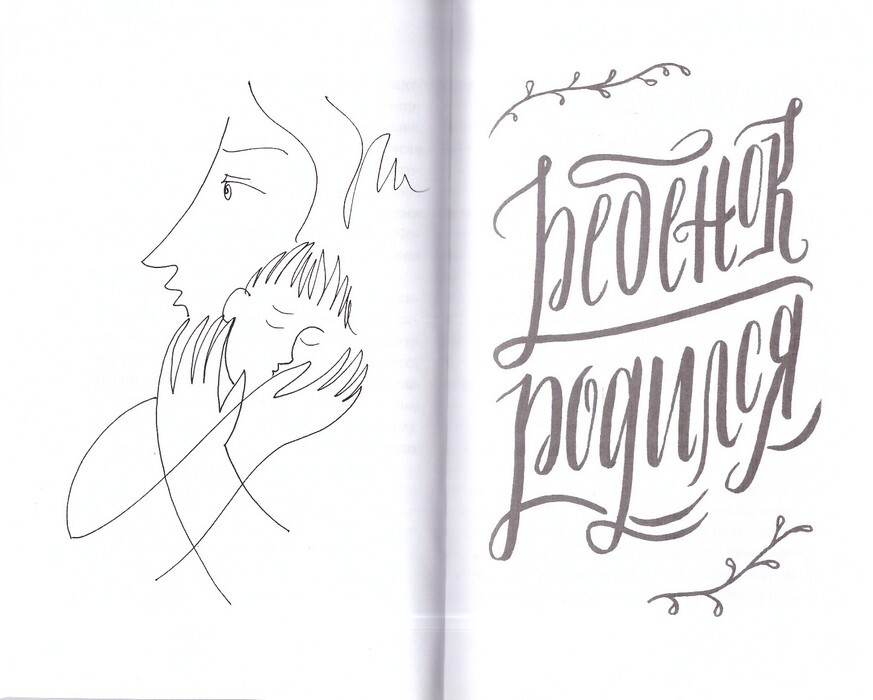 Ребенок
родился